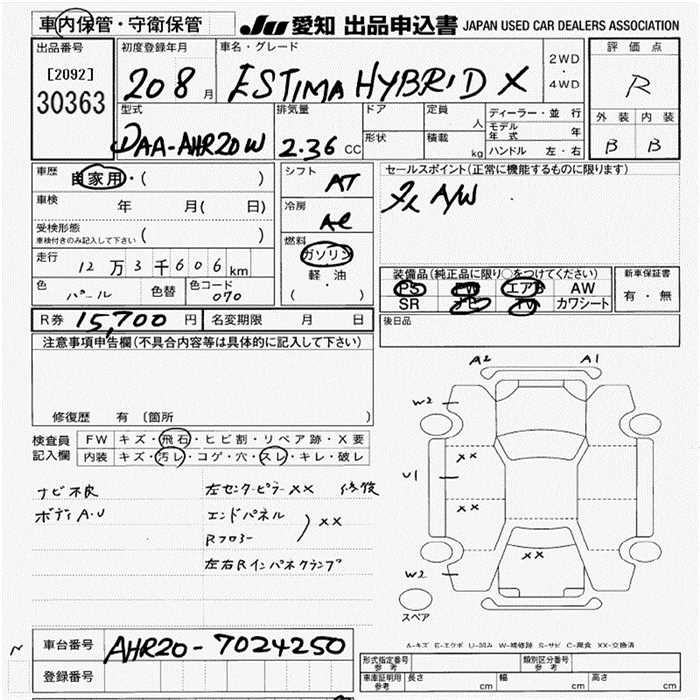 車内保管・守衛保管 JU 愛知 出品申込書 JAPAN USED CAR DEALERS ASSOCIATION
出品番号 初度登録年月 車名・グレード 評価点
[2092] 30363
208月 ESTIMA HYBRID X 2WD・4WD R
型式 排気量 ドア 定員 人 ディーラー・並行 外装 内装
DAA-AHR20W 2.36 CC 形状 積載 kg モデル年式 年 B B
ハンドル 左・右
車歴 自家用・( ) シフト AT セールスポイント(正常に機能するものに限ります)
車検 年 月( 日) 冷房 AC A/W
受検形態 車検付きのみ記入して下さい ( ) 燃料
走行 12万3千606km ガソリン
軽油
( ・ )
色 パール 色替 色コード 070
装備品(純正品に限り○をつけてください) 新車保証書
PS PW エアB AW 有・無
SR ナビ TV カワシート
R券 15,700円 名変期限 月 日 後日品
注意事項申告欄(不具合内容等は具体的に記入して下さい)
修復歴 有 〔箇所 〕
検査員記入欄 FW キズ・飛石・ヒビ割・リペア跡・X要
内装 キズ・汚レ・コゲ・穴・スレ・キレ・破レ
ナビ不良 左センターピラーXX 修復
ボディA・U エンドパネル
Rフロアー ) XX
左右Rインパネクランプ
A2 A1
W2
XX
U1
XX
XX
W2
スペア
A-キズ E-エクボ U-凹み W-補修跡 S-サビ C-腐食 XX-交換済
車台番号 AHR20-7024250
登録番号
形式指定番号 参考 類別区分番号 参考
車庫証明用 参考 長さ cm 幅 cm 高さ cm